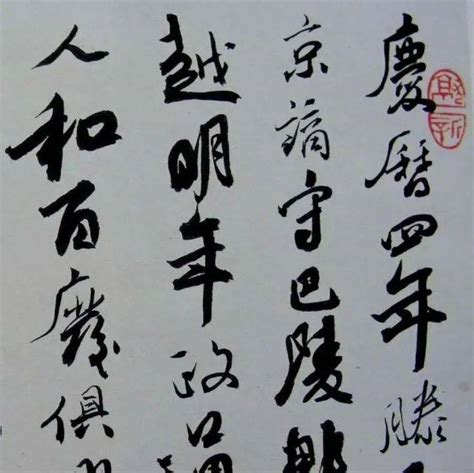 慶曆四年滕
京謫守巴陵
越明年政
人和百廢俱